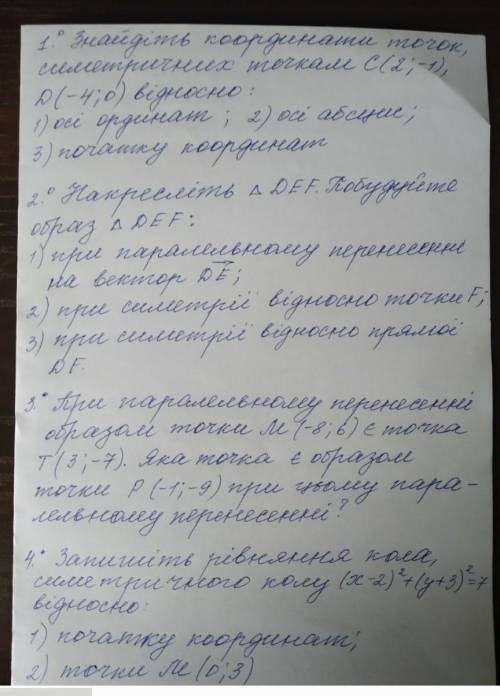 1.° Знайдіть координати точок,
симетричних точкам C(2;-1),
D(-4;0) відносно:
1) осі ординат; 2) осі абсцис;
3) початку координат
2.° Накресліть △DEF. Побудуйте
образ △DEF:
1) при паралельному перенесенні
на вектор DE;
2) при симетрії відносно точки F;
3) при симетрії відносно прямої
DF.
3.° При паралельному перенесенні
образом точки M(-8;6) є точка
T(3;-7). Яка точка є образом
точки P(-1;-9) при цьому пара-
лельному перенесенні?
4.° Запишіть рівняння кола,
симетричного колу (x-2)²+(y+3)²=7
відносно:
1) початку координат;
2) точки M(0;3)